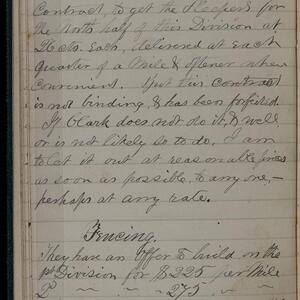 Contract, to get the Sleepers for
the North half of this Division at
cts. Each, delivered at each
quarter of a Mile & oftener when
convenient. But this contract
is not binding, & has been forfeited.
If Clark does not do it, & well
or is not likely so to do, I am
to let it out at reasonable prices
as soon as possible, to any one,—
perhaps at any rate.
Fencing.
They have an offer to build on the
1st Division for $225 per Mile
2d " " " 275 "